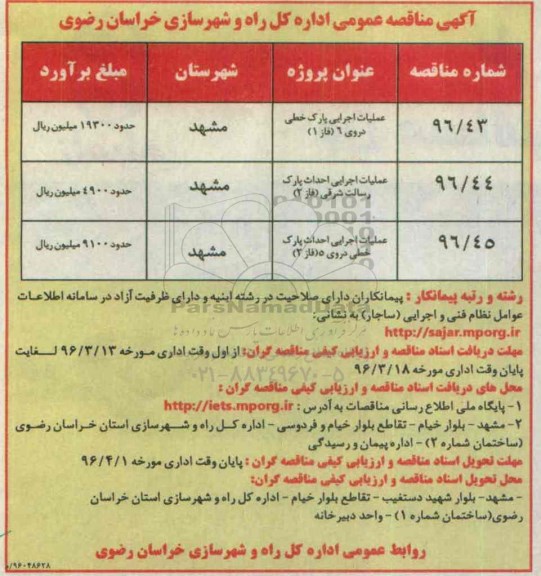 آگهی مناقصه عمومی اداره کل راه و شهرسازی خراسان رضوی
شماره مناقصه عنوان پروژه شهرستان مبلغ برآورد
۹۶/۴۳ عملیات اجرایی پارک خطی دروی ۶ (فاز ۱) مشهد حدود ۱۹۳۰۰ میلیون ریال
۹۶/۴۴ عملیات اجرایی احداث پارک رسالت شرقی (فاز ۲) مشهد حدود ۴۹۰۰ میلیون ریال
۹۶/۴۵ عملیات اجرایی احداث پارک خطی دروی ۵ (فاز ۲) مشهد حدود ۹۱۰۰ میلیون ریال
رشته و رتبه پیمانکار : پیمانکاران دارای صلاحیت در رشته ابنیه و دارای ظرفیت آزاد در سامانه اطلاعات
عوامل نظام فنی و اجرایی (ساجار) به نشانی:
http://sajar.mporg.ir
مهلت دریافت اسناد مناقصه و ارزیابی کیفی مناقصه گران: از اول وقت اداری مورخه ۹۶/۳/۱۳ لغایت
پایان وقت اداری مورخه ۹۶/۳/۱۸
محل های دریافت اسناد مناقصه و ارزیابی کیفی مناقصه گران :
۱- پایگاه ملی اطلاع رسانی مناقصات به آدرس : http://iets.mporg.ir
۲- مشهد - بلوار خیام - تقاطع بلوار خیام و فردوسی - اداره کل راه و شهرسازی استان خراسان رضوی
(ساختمان شماره ۲) - اداره پیمان و رسیدگی
مهلت تحویل اسناد مناقصه و ارزیابی کیفی مناقصه گران : پایان وقت اداری مورخه ۹۶/۴/۱
محل تحویل اسناد مناقصه و ارزیابی کیفی مناقصه گران:
- مشهد- بلوار شهید دستغیب - تقاطع بلوار خیام - اداره کل راه و شهرسازی استان خراسان
رضوی(ساختمان شماره ۱) - واحد دبیرخانه
روابط عمومی اداره کل راه و شهرسازی خراسان رضوی
/۹۶۰۲۸۶۲۸
ParsNamadData
۰۲۱-۸۸۳۴۹۶۷۰-۵